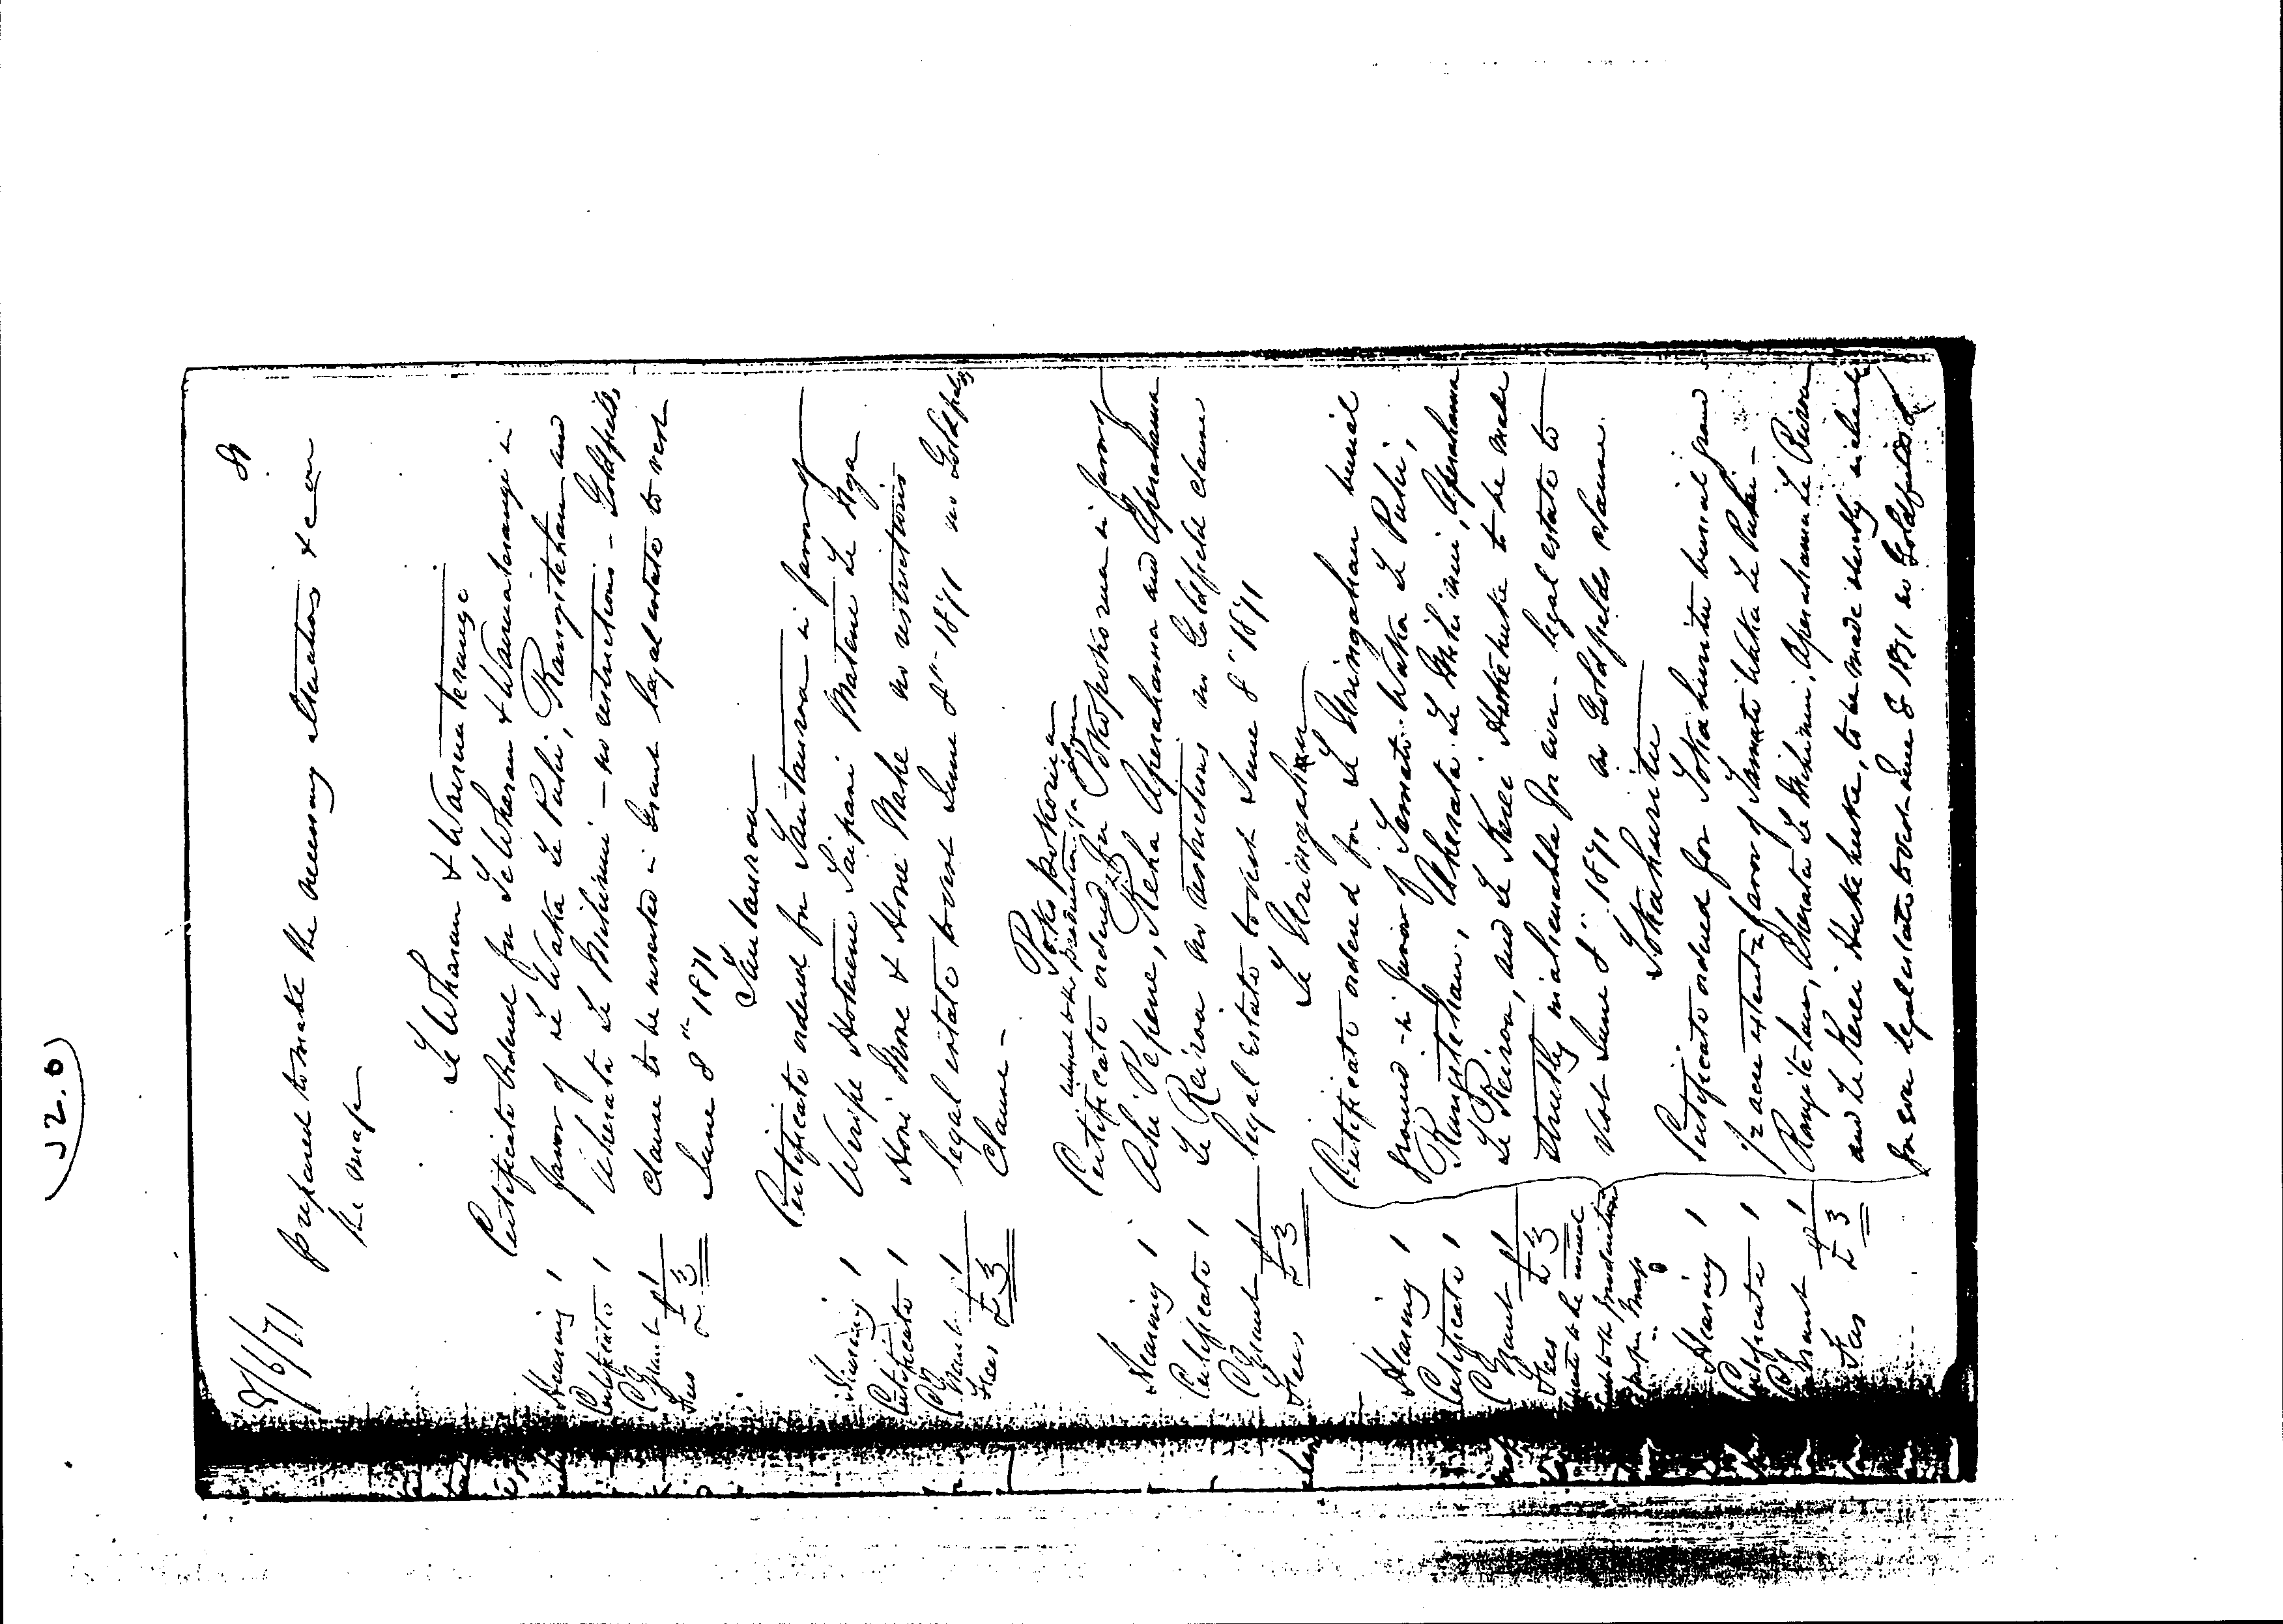 J2.0
8/6/71
prepared to make the necessary alterations &c on
the map
Te Wharau & Wairuaterangi
Certificate Ordered for Te Wharau & Wairuaterangi in
favor of Te Waka Te Puhi, Rangitehau and
Akerata Te Mihimi — no restrictions — Goldfields
clause to be inserted in Grant legal estate to vest
June 8th 1871
Hearing 1
Certificate 1
C Grant 1
Fees £3
Tautauroa
Certificate ordered for Tautauroa in favor of
Wiripe Hoterene Taipari Matene Te Nga
Honi More & Hone Mahe no restrictions
legal estate to vest June 8th 1871 no Goldfields
Clause —
Hearing 1
Certificate 1
C Grant 1
Fees £3
Pokopokorua
subject to the production of a plan
Certificate ordered for Pokopokorua in favor of
Te Reiroa no restrictions no Goldfields clause
legal estate to vest June 8th 1871
Hearing 1
Certificate 1
C Grant 1
Fees £3
Te Uringahau
Certificate ordered for Te Uringahau burial
ground in favor of Tamati Waka Te Puhi,
Rangitehau, Akerata Te Mihimi, Aperahama
Te Reiroa, and Te Keei Hukehuke to be made
strictly inalienable for ever — legal estate to
vest June 8th 1871 no Goldfields clause.
Hearing 1
Certificate 1
C Grant 1
Fees £3
proper map
Tokahuruhuru
Certificate ordered for burial ground
1/2 acre extent in favor of Tamati Waka Te Puhi —
Rangitehau, Akerata Te Mihimi, Aperahama Te Reiroa
and Te Keei Hukehuke, to be made strictly inalienable
for ever legal estate to vest June 8 1871 no Goldfields cl
Hearing 1
Certificate 1
C Grant 1
Fees £3